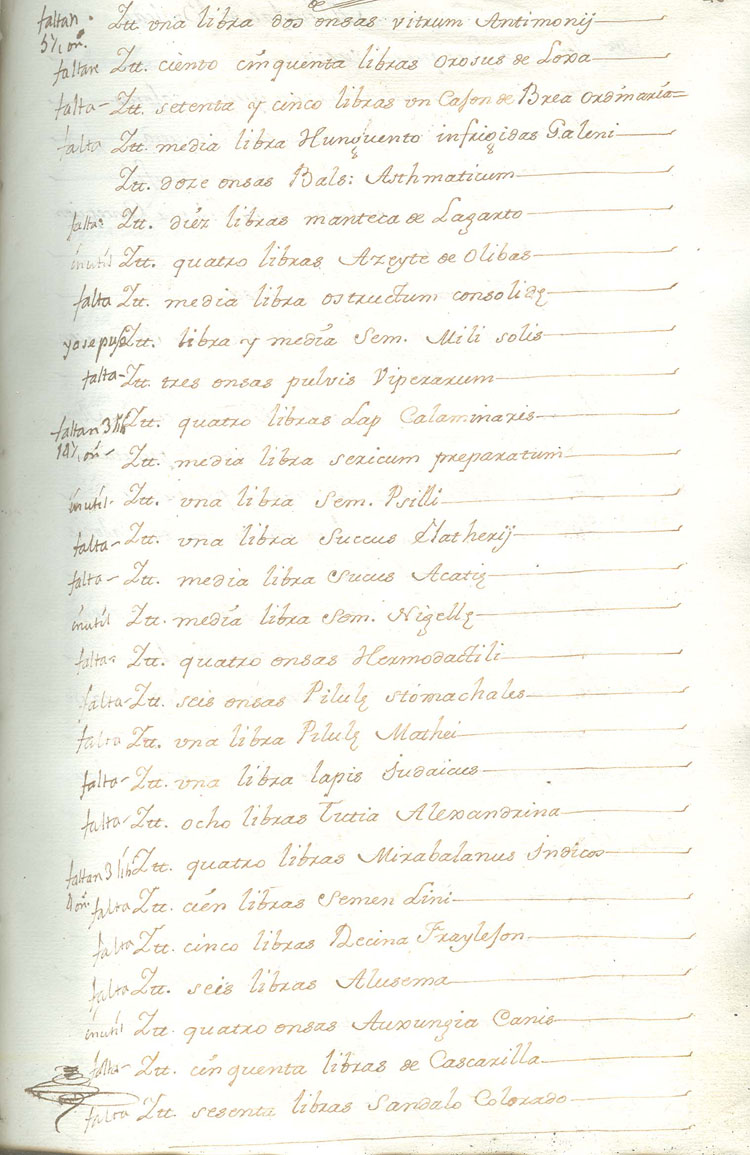 faltan Ytt. vna libra dos onsas vitrum Antimonij
5½ on.
faltan Ytt. ciento cinquenta libras orosus de Loxa
falta Ytt. setenta y cinco libras vn Cason de Brea ordinaria
falta Ytt. media libra Hunguento infrigidas Galeni
Ytt. doze onsas Bals: Asthmaticum
falta Ytt. diéz libras manteca de Lagarto
inutil Ytt. quatro libras Azeyte de Olibas
falta Ytt. media libra ostructum consolidę
ya se puso Ytt. libra y media Sem. Mili solis
falta Ytt. tres onsas pulvis Viperarum
faltan 3 lib Ytt. quatro libras Lap Calaminaris
14½ on. Ytt. media libra sericum preparatum
inutil Ytt. vna libra Sem. Psilli
falta Ytt. vna libra Succus Elatherij
falta Ytt. media libra Sucus Acatię
inutil Ytt. media libra Sem. Nigellę
falta Ytt. quatro onsas Hermodactili
falta Ytt. seis onsas Pilulę stomachales
falta Ytt. vna libra Pilulę Mathei
falta Ytt. vna libra lapis Judaicus
falta Ytt. ocho libras Tutia Alexandrina
faltan 3 lib Ytt. quatro libras Mirabalanus Indicos
4 on. falta Ytt. cién libras Semen Lini
falta Ytt. cinco libras Recina Frayleson
falta Ytt. seis libras Alusema
inutil Ytt. quatro onsas Auxungia Canis
falta Ytt. cinquenta libras de Cascarilla
falta Ytt. sesenta libras Sandalo Colorado